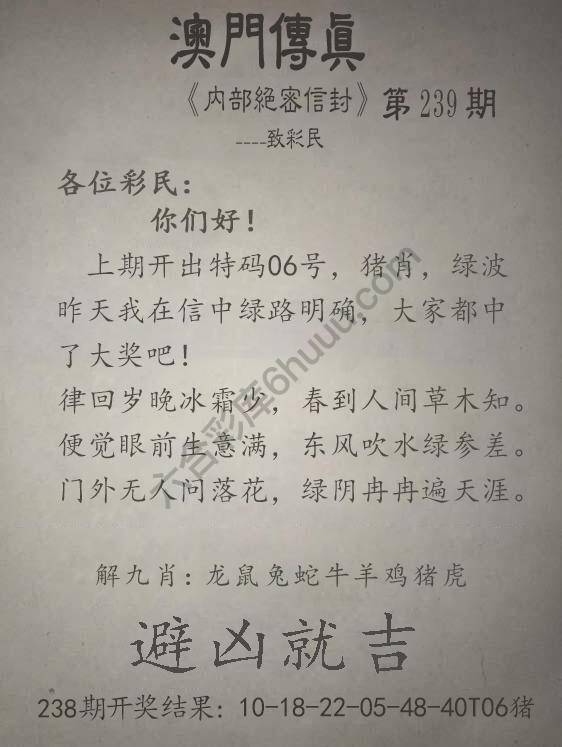 澳門傳眞
《内部絕密信封》第239期
----致彩民
各位彩民：
你们好！
上期开出特码06号，猪肖，绿波
昨天我在信中绿路明确，大家都中
了大奖吧！
律回岁晚冰霜少，春到人间草木知。
便觉眼前生意满，东风吹水绿参差。
门外无人问落花，绿阴冉冉遍天涯。
六合彩库6huuu.com
解九肖：龙鼠兔蛇牛羊鸡猪虎
避凶就吉
238期开奖结果：10-18-22-05-48-40T06猪